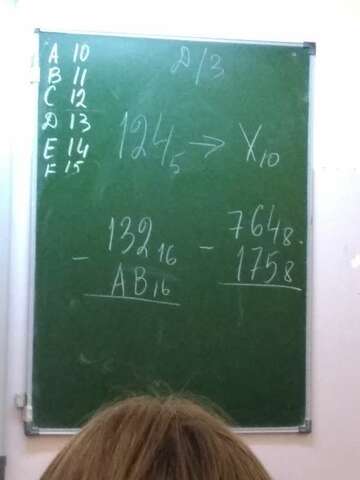 A 10
B 11
C 12
D 13
E 14
F 15
Д/З
124₅ → X₁₀
- 132₁₆
AB₁₆
- 764₈.
175₈